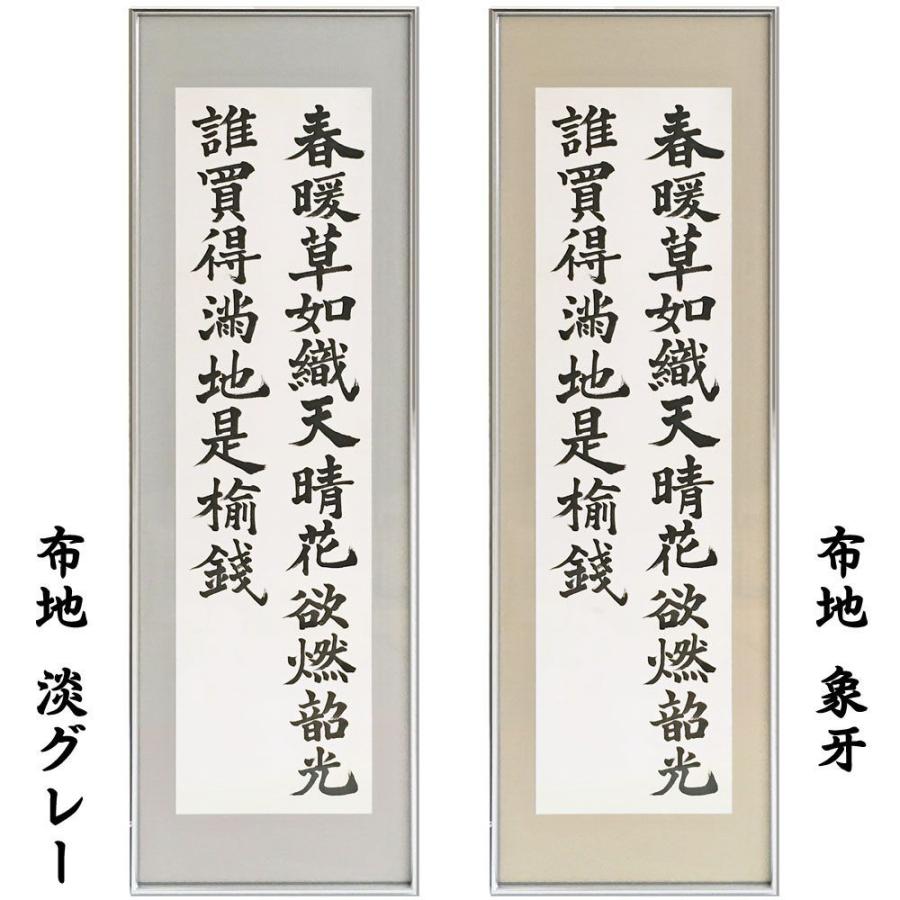 布地 淡グレー
春暖草如織天晴花欲燃韶光
誰買得満地是楡錢
春暖草如織天晴花欲燃韶光
誰買得満地是楡錢
布地 象牙